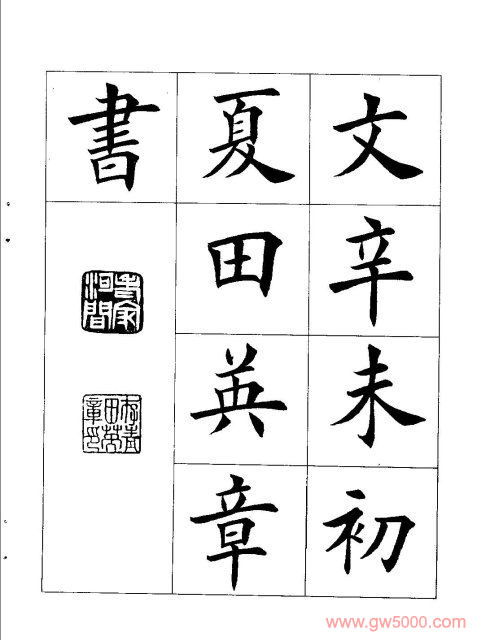 文辛未初
夏田英章
書
田英
章印
www.gw5000.com